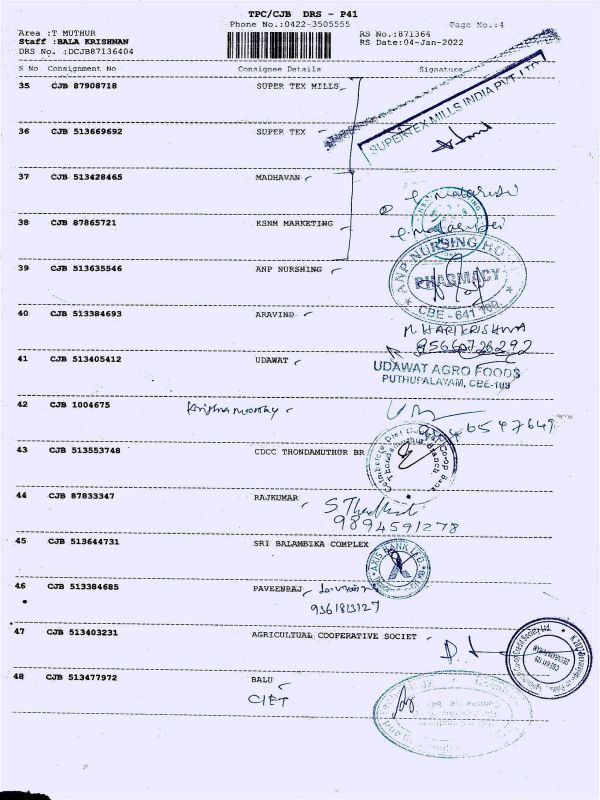 TPC/CJB DRS - P41
Phone No.:0422-3505555
Page No.:4
Area :T MUTHUR
RS No.:871364
Staff :BALA KRISHNAN
RS Date:04-Jan-2022
DRS No. :DCJB87136404
S No Consignment No Consignee Details Signature
35 CJB 87908718 SUPER TEX MILLS
SUPERTEX MILLS INDIA PVT LTD
36 CJB 513669692 SUPER TEX
37 CJB 513428465 MADHAVAN
38 CJB 87865721 KSNM MARKETING
39 CJB 513635546 ANP NURSHING
ANP NURSING HO
PHARMACY
CBE - 641 109
40 CJB 513384693 ARAVIND
M HARIKRISHNA
41 CJB 513405412 UDAWAT
UDAWAT AGRO FOODS
PUTHUPALAYAM, CBE-109
42 CJB 1004675 Krishna moorthy
43 CJB 513553748 CDCC THONDAMUTHUR BR
Thondamuthur Branch
44 CJB 87833347 RAJKUMAR
9894591278
45 CJB 513644731 SRI BALAMBIKA COMPLEX
AXIS BANK LTD.
46 CJB 513384685 PAVEENRAJ
9361813127
47 CJB 513403231 AGRICULTUAL COOPERATIVE SOCIET
48 CJB 513477972 BALU
CIET